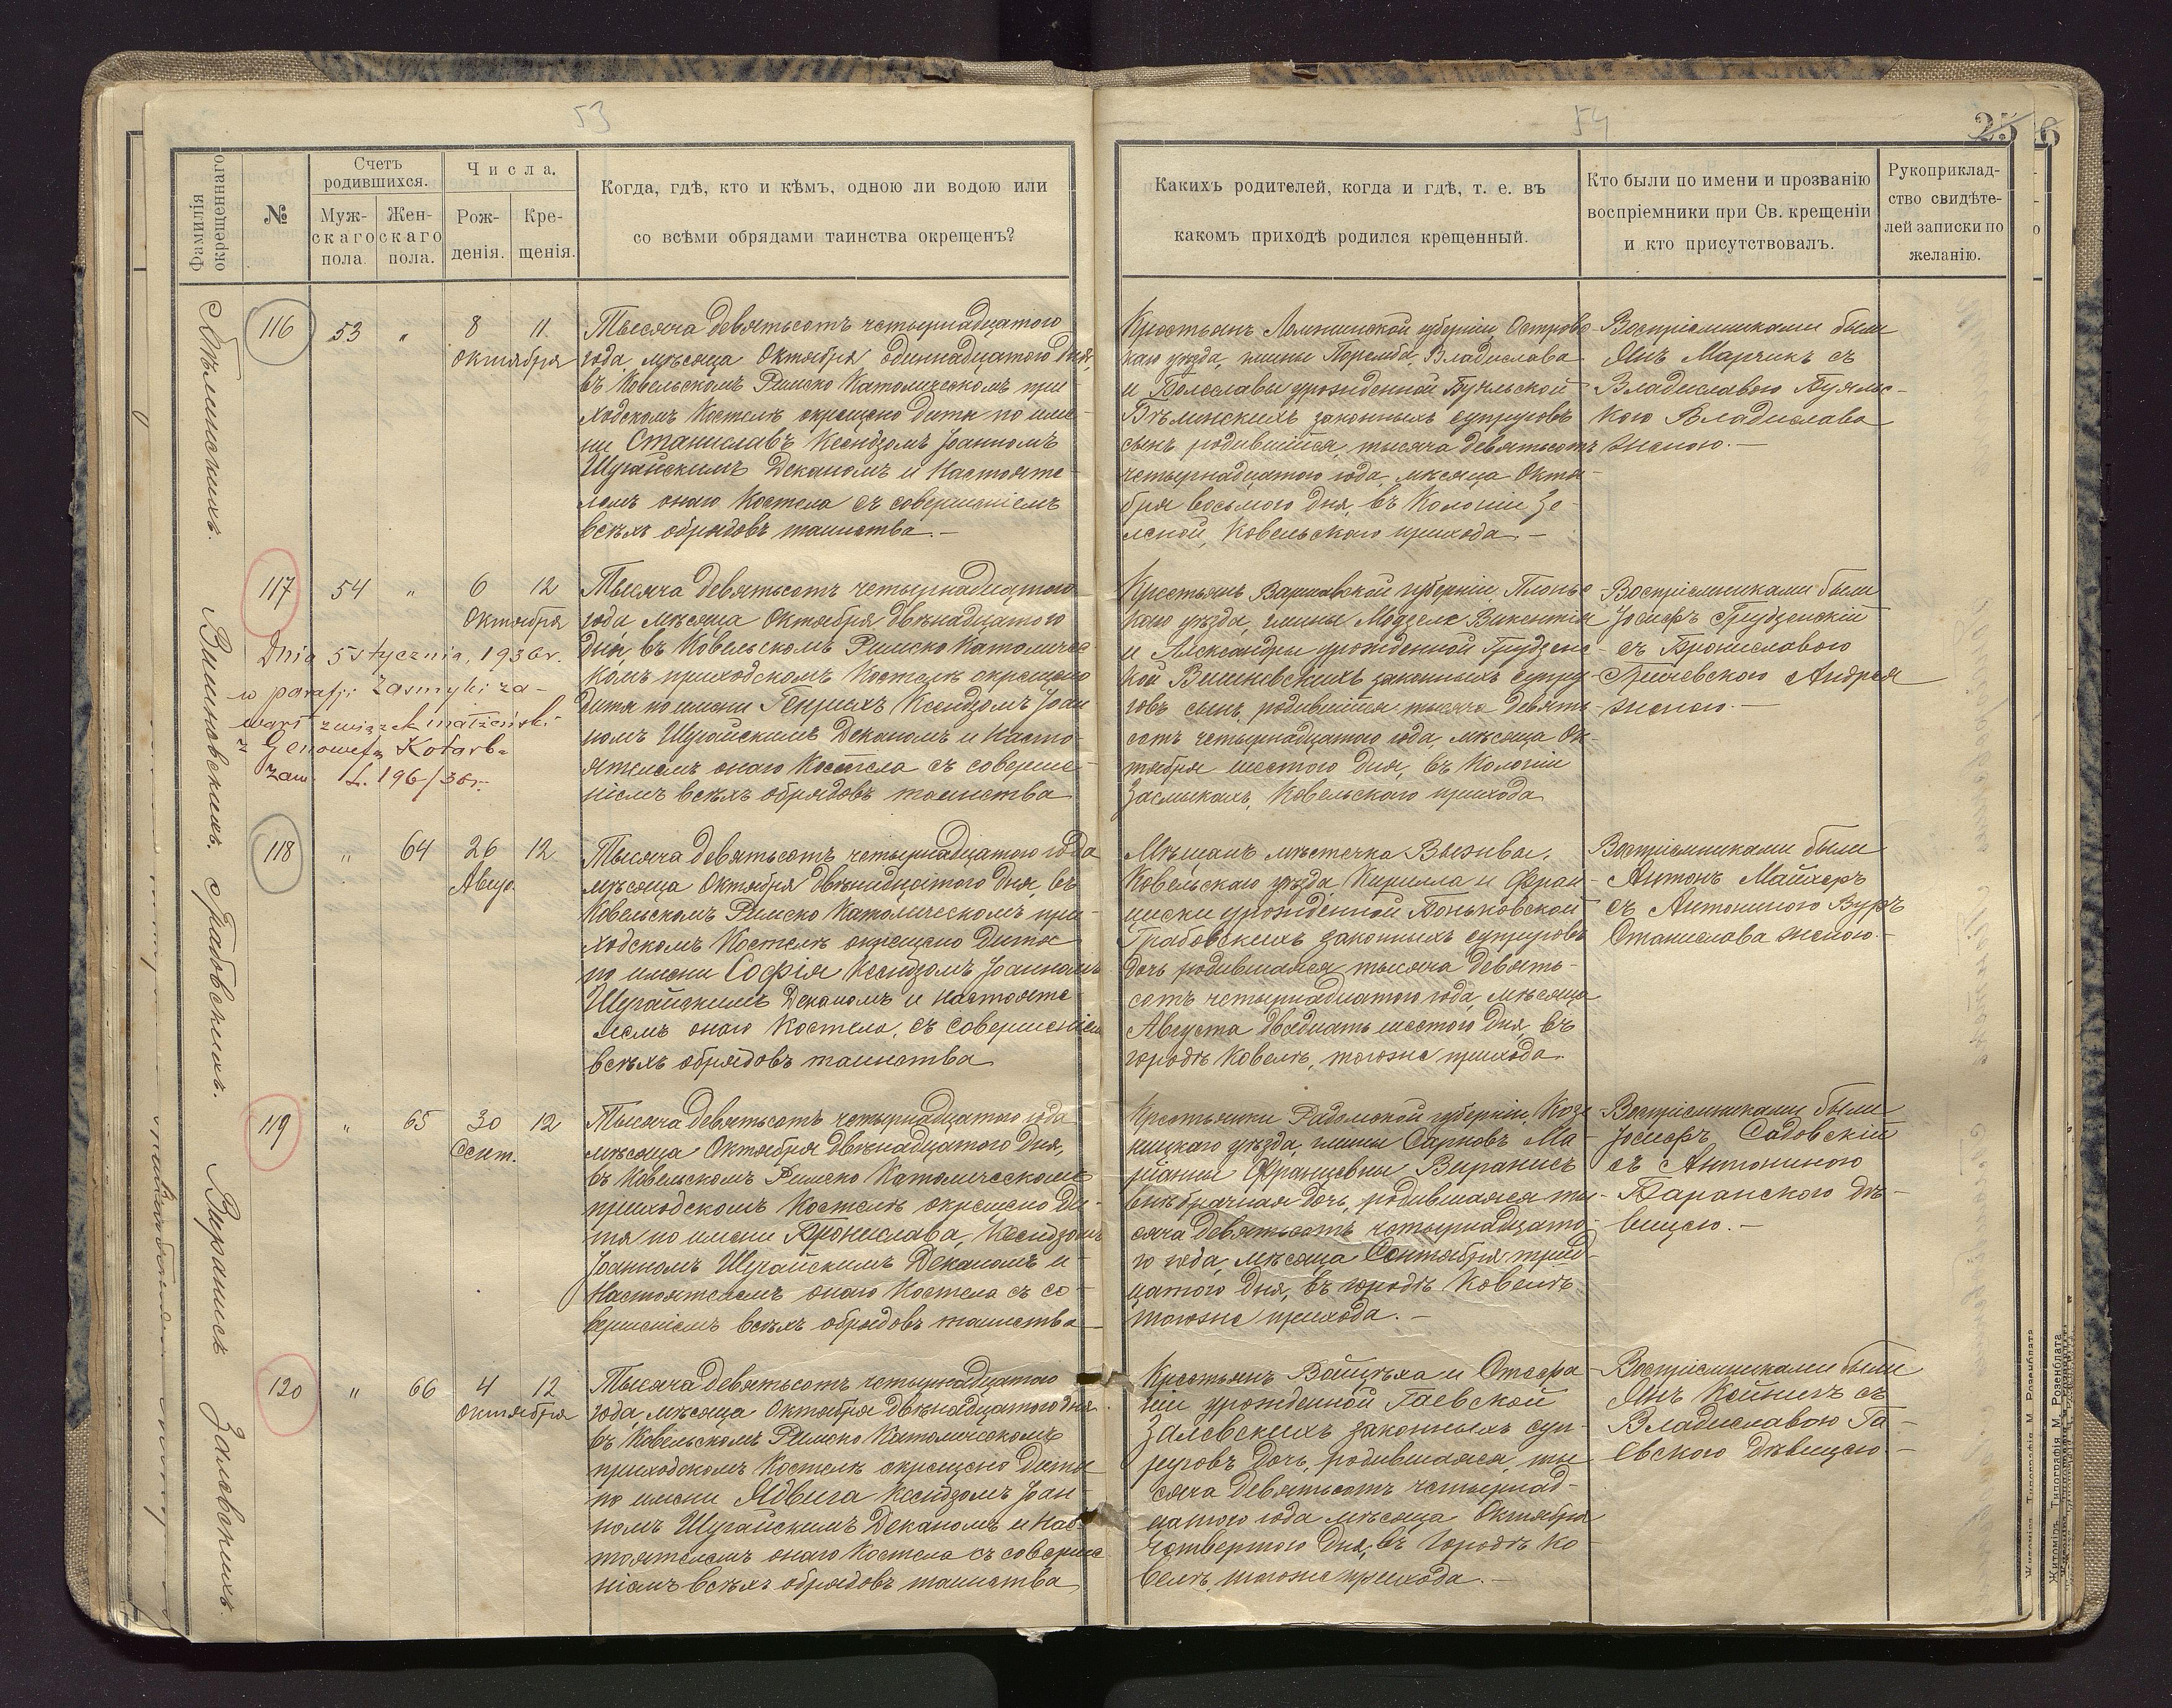 53
54
25
6
Фамилія окрещеннаго.
№
Счетъ родившихся.
Мужскаго пола.
Женскаго пола.
Числа.
Рожденія.
Крещенія.
Когда, гдѣ, кто и кѣмъ, одною ли водою или
со всѣми обрядами таинства окрещенъ?
Какихъ родителей, когда и гдѣ, т. е. въ
какомъ приходѣ родился крещенный.
Кто были по имени и прозванію
воспріемники при Св. крещеніи
и кто присутствовалъ.
Рукоприклад-
ство свидѣте-
лей записки по
желанію.
Бѣлинскихъ.
116
53
"
8 11
Октября
Тысяча девятьсотъ четырнадцатого
года, мѣсяца Октября одиннадцатого дня,
въ Ковельскомъ Римско Католическомъ при-
ходскомъ Костелѣ окрещено дитя по име-
ни Станиславъ Ксендзомъ Іоанномъ
Шугайскимъ Деканомъ и Настояте-
лемъ онаго Костела съ совершеніемъ
всѣхъ обрядовъ таинства.—
Крестьянъ Ломжинской губерніи, Островс-
каго уѣзда, гмины Поремба, Владислава
и Болеславы урожденной
Бѣлинскихъ законныхъ супруговъ
сынъ, родившійся тысяча девятьсотъ
четырнадцатого года, мѣсяца Октя-
бря восьмого дня, въ Колоніи Зе-
леной, Ковельскаго прихода.—
Воспріемниками были
Янъ Марчикъ съ
Владиславою
кою Владислава
женою.—
Вишневскихъ.
117
54
"
6 12
Октября
Dnia 5 stycznia, 1936 r.
w parafji Zasmyki za-
warł związek małżeński
z Genowefą Kotarba
zaw. L. 196/36 r.
Тысяча девятьсотъ четырнадцатого
года мѣсяца Октября двѣнадцатого
дня, въ Ковельскомъ Римско Католичес-
комъ приходскомъ Костелѣ окрещено
дитя по имени Генрихъ Ксендзомъ Іоан-
номъ Шугайскимъ Деканомъ и Насто-
ятелемъ онаго Костела съ соверше-
ніемъ всѣхъ обрядовъ таинства
Крестьянъ Варшавской губерніи, Плоньс-
каго уѣзда, гмины Модзеле Викентія
и Александры урожденной Грудзенс-
кой Вишневскихъ законныхъ супру-
говъ сынъ, родившійся тысяча девять-
сотъ четырнадцатого года, мѣсяца Ок-
тября шестого дня, въ Колоніи
Засмыкахъ, Ковельскаго прихода
Воспріемниками были
Іосифъ Грудзенскій
съ Брониславою
Андрея
женою.—
Грабовскихъ.
118
"
64
26 12
Авгус.
Тысяча девятьсотъ четырнадцатого года
мѣсяца Октября двѣнадцатого дня, въ
Ковельскомъ Римско Католическомъ при-
ходскомъ Костелѣ окрещено дитя
по имени Софія Ксендзомъ Іоанномъ
Шугайскимъ Деканомъ и Настояте-
лемъ онаго Костела, съ совершеніемъ
всѣхъ обрядовъ таинства
Мѣщанъ мѣстечка Выжвы,
Ковельскаго уѣзда, Кирилла и Фран-
циски урожденной Боньковской
Грабовскихъ законныхъ супруговъ
дочь родившаяся тысяча девять-
сотъ четырнадцатого года, мѣсяца
Августа двадцать шестого дня, въ
городѣ Ковелѣ, тогоже прихода.
Воспріемниками были
Антонъ Майхеръ
съ Антониною Вуръ
Станислава женою.—
Виранисъ
119
"
65
30 12
Сент.
Тысяча девятьсотъ четырнадцатого года
мѣсяца Октября двѣнадцатого дня,
въ Ковельскомъ Римско Католическомъ
приходскомъ Костелѣ окрещено ди-
тя по имени Бронислава, Ксендзомъ
Іоанномъ Шугайскимъ Деканомъ и
Настоятелемъ онаго Костела съ со-
вершеніемъ всѣхъ обрядовъ таинства
Крестьянки Радомской губерніи, Козе-
ницкаго уѣзда, гмины Сарновъ Ма-
ріанны Францевны Виранисъ
внѣбрачная дочь, родившаяся ты-
сяча девятьсотъ четырнадцато-
го года, мѣсяца Сентября трид-
цатого дня, въ городѣ Ковелѣ
тогоже прихода.—
Воспріемниками были
Іосифъ Садовскій
съ Антониною
Баранскою дѣ-
вицею.—
Залевскихъ.
120
"
66
4 12
Октября
Тысяча девятьсотъ четырнадцатого
года, мѣсяца Октября двѣнадцатого дня
въ Ковельскомъ Римско Католическомъ
приходскомъ Костелѣ окрещено дитя
по имени Ядвига Ксендзомъ Іоан-
номъ Шугайскимъ Деканомъ и Нас-
тоятелемъ онаго Костела съ соверше-
ніемъ всѣхъ обрядовъ таинства
Крестьянъ Войцѣха и Стефа-
ніи урожденной Гаевской
Залевскихъ законныхъ суп-
руговъ дочь, родившаяся ты-
сяча девятьсотъ четырнад-
цатого года мѣсяца Октября
четвертого дня, въ городѣ Ко-
велѣ, тогоже прихода.—
Воспріемниками были
Янъ съ
Владиславою Га-
евскою дѣвицею—
Житоміръ, Типографія М. Розенблата